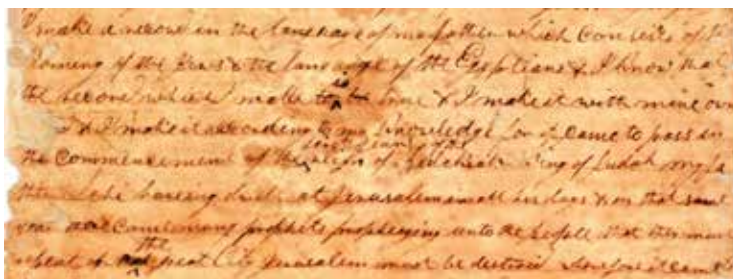 make a recore in the language of my father which Consists of th
learning of the Jews & the language of the Egyptians & I know that
is
the recore which I make to be true & I make it with mine own
& I make it according to my knowledge for it came to pass in
first year of the
the commencement of the reign of Zedekiah King of Judah my fa
ther Lehi haveing dwelt at Jerusalem in all his days & in that same
year came many prophets prophesying unto the people that they must
the
repent or great city Jerusalem must be distroid therefore it came